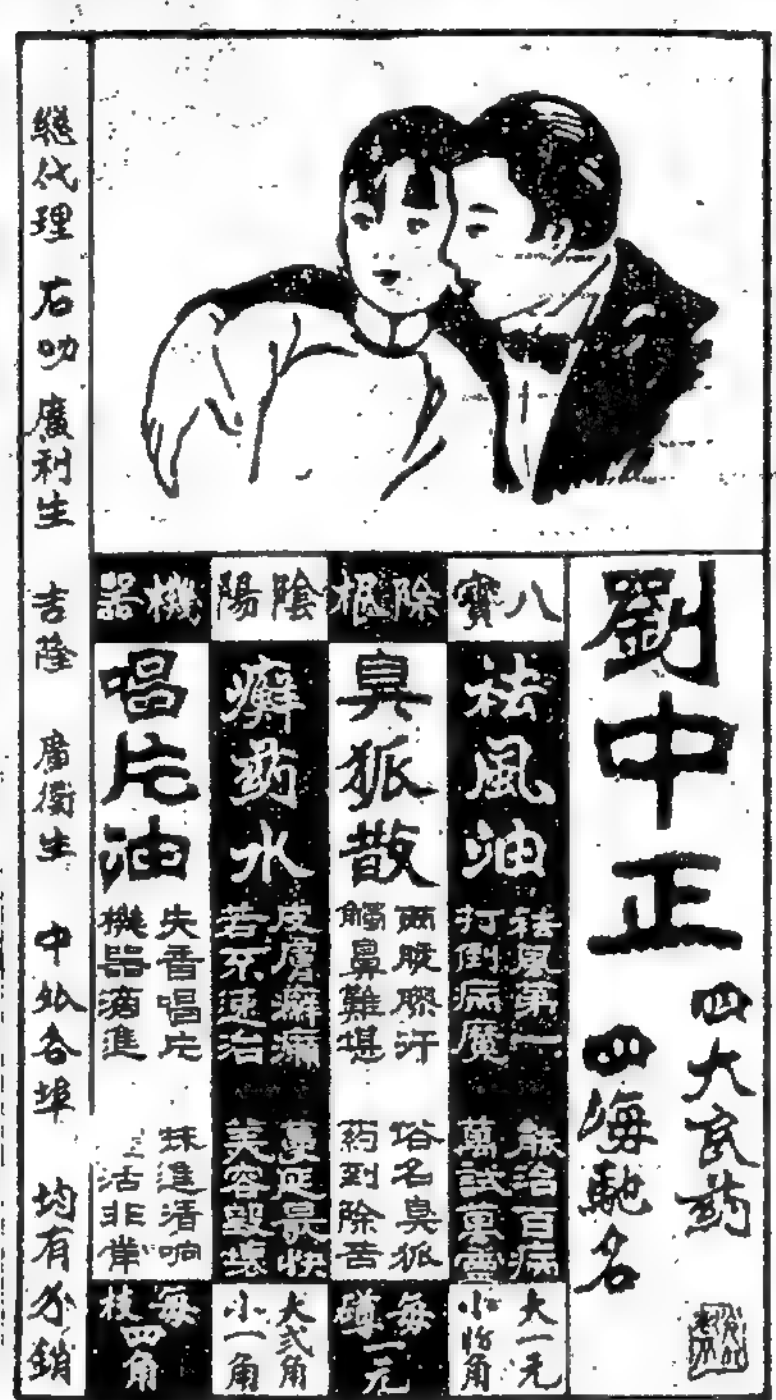 劉中正
四大良药
四海馳名
八寶
祛風油
祛風第一
打倒病魔
能治百病
萬試萬靈
大一元
小角
除根
臭狐散
兩腋膠汗
觸鼻難堪
俗名臭狐
药到除苦
每
罇一元
陰陽
癬药水
皮膚癬癩
若不速治
蔓延最快
美容毀壞
大弍角
小一角
機器
唱片油
失音唱片
機器滴進
抹進清响
活非常
每
枝四角
總代理 石叻 廣利生 吉隆 廣衛生 中外各埠 均有分銷